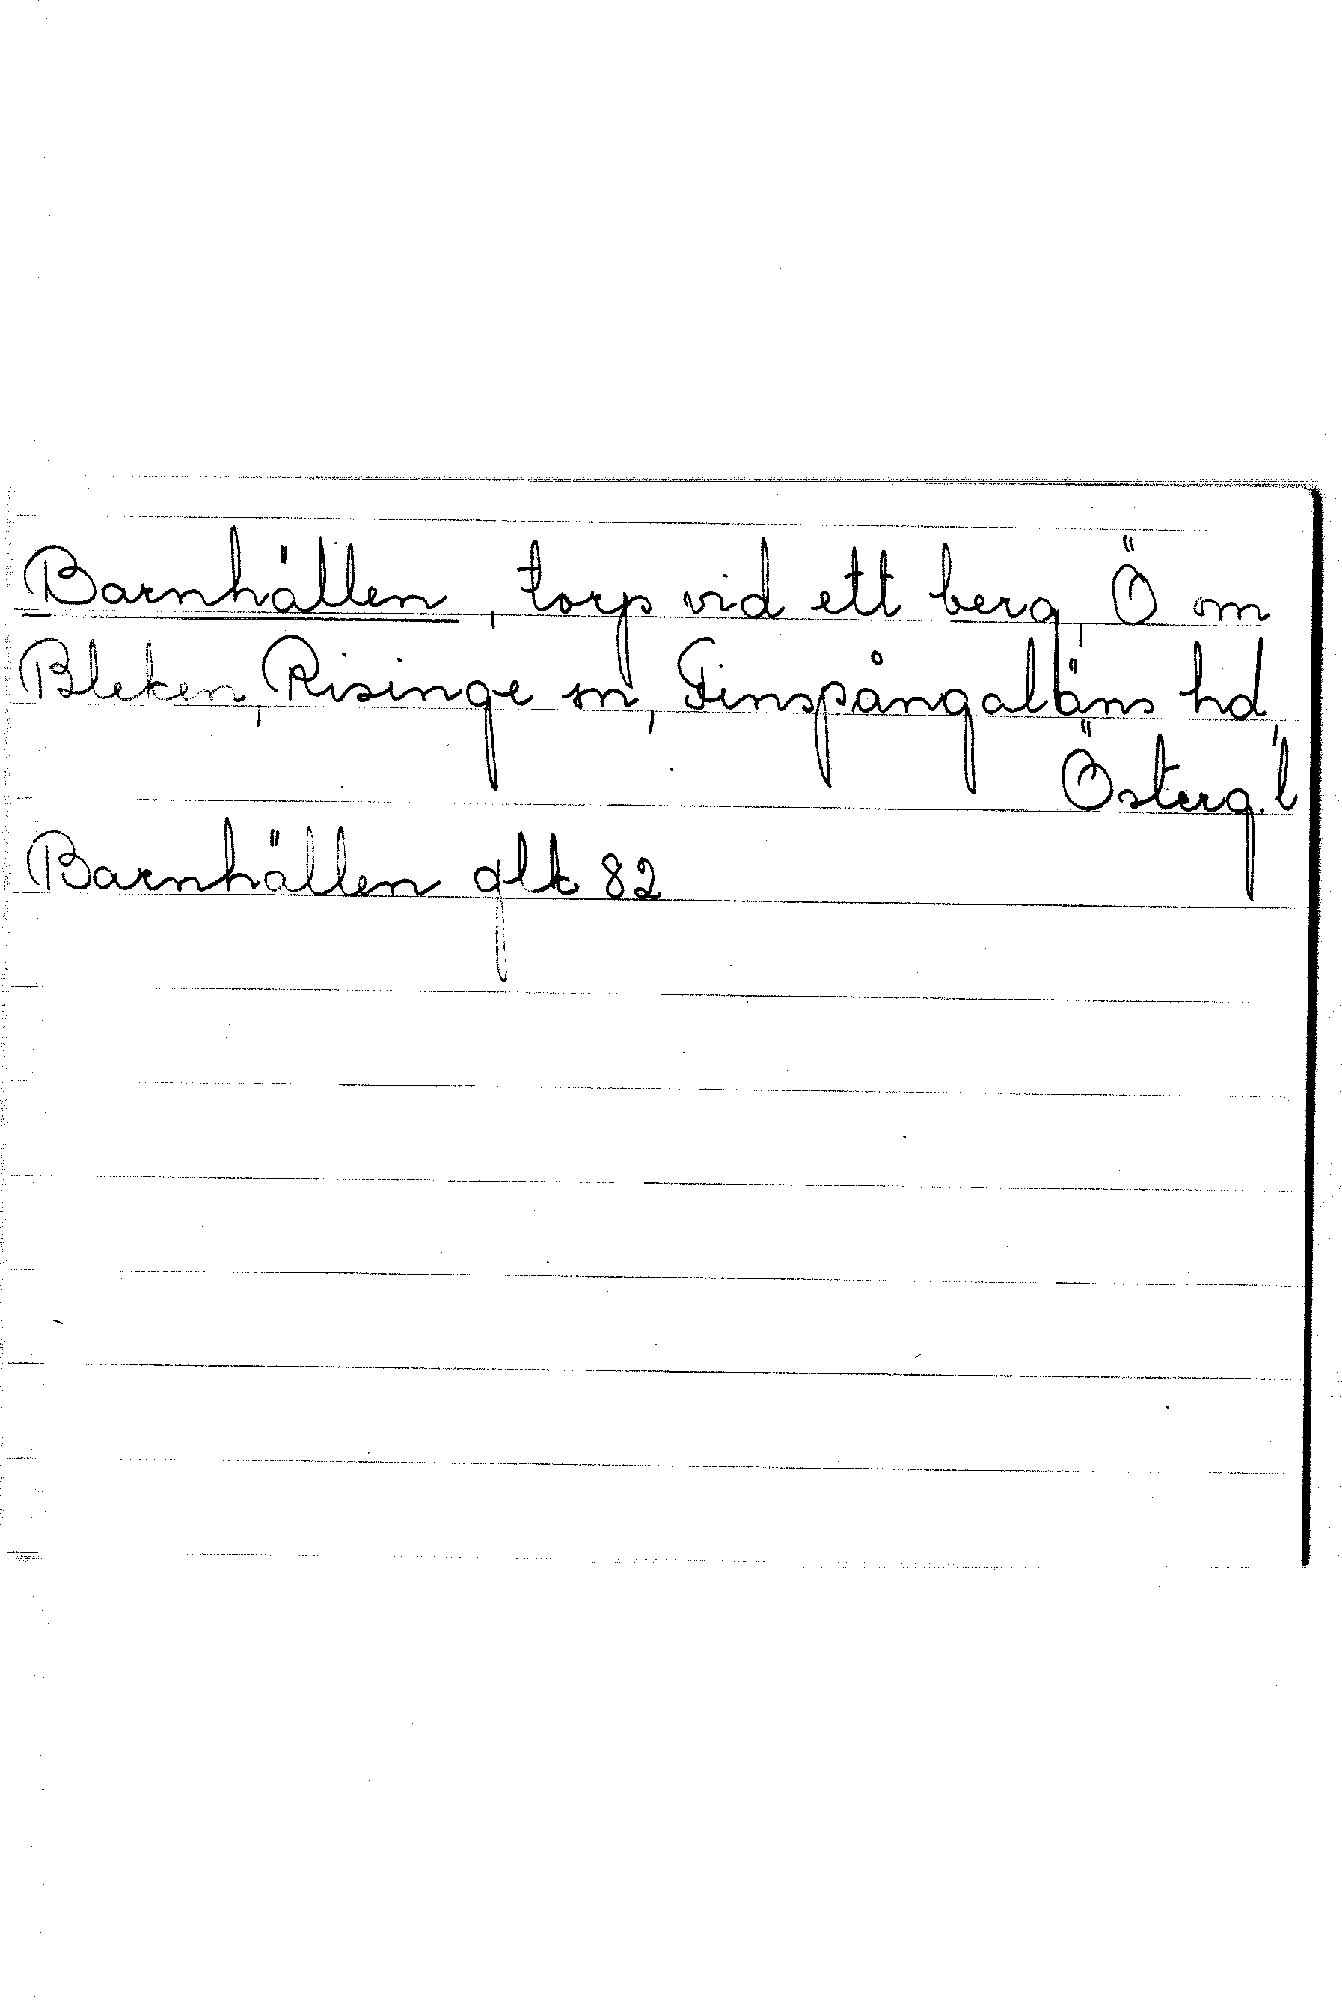 Barnhällen, torp vid ett berg, Ö om
Bleken, Risinge sn, Finspångaläns hd,
Österg. l
Barnhällen glk 82